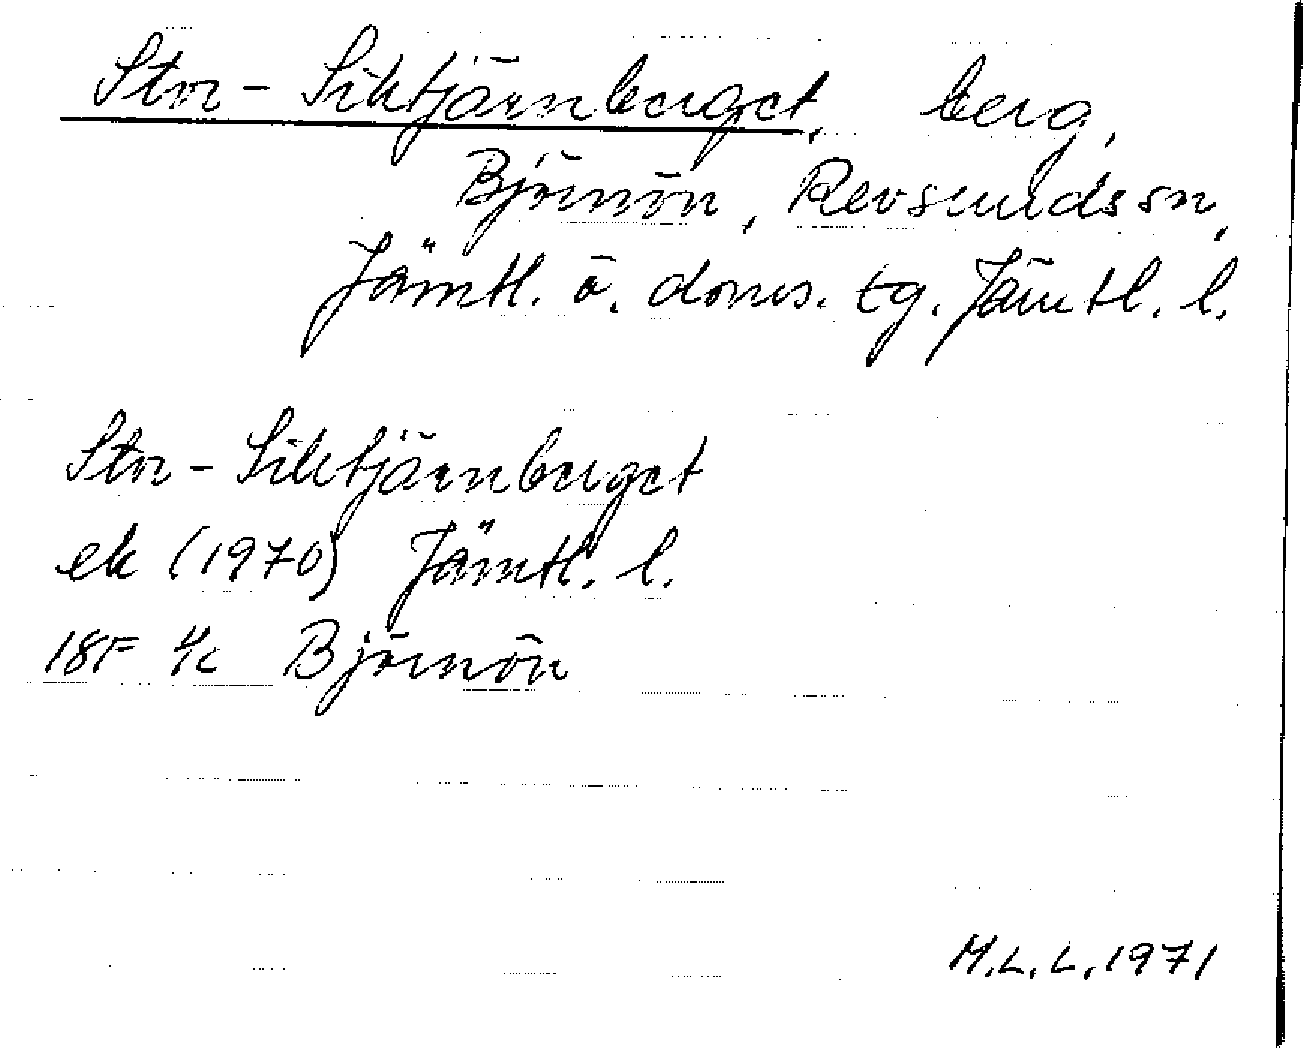 Stor-Siktjärnberget, berg,
Björnön, Revsunds sn,
Jämtl. ö. doms. tg. Jämtl. l.
Stor-Siktjärnberget
ek (1970) Jämtl. l.
18F 4c Björnön
M.L.L. 1971